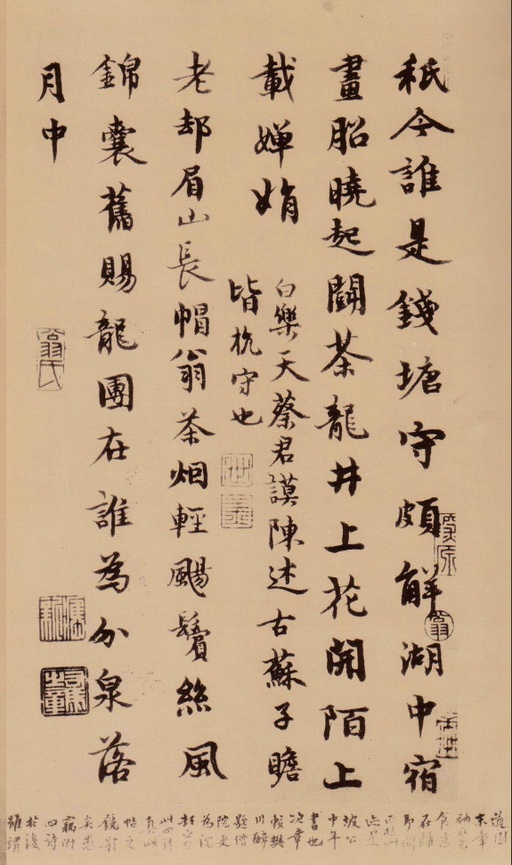 秖今誰是錢塘守頗解湖中宿
畫船曉起鬭茶龍井上花開陌上
載嬋娟
白樂天蔡君謨陳述古蘇子瞻
皆杭守也
老却眉山長帽翁茶烟輕颺鬢絲風
錦囊舊賜龍團在誰為分泉落
月中